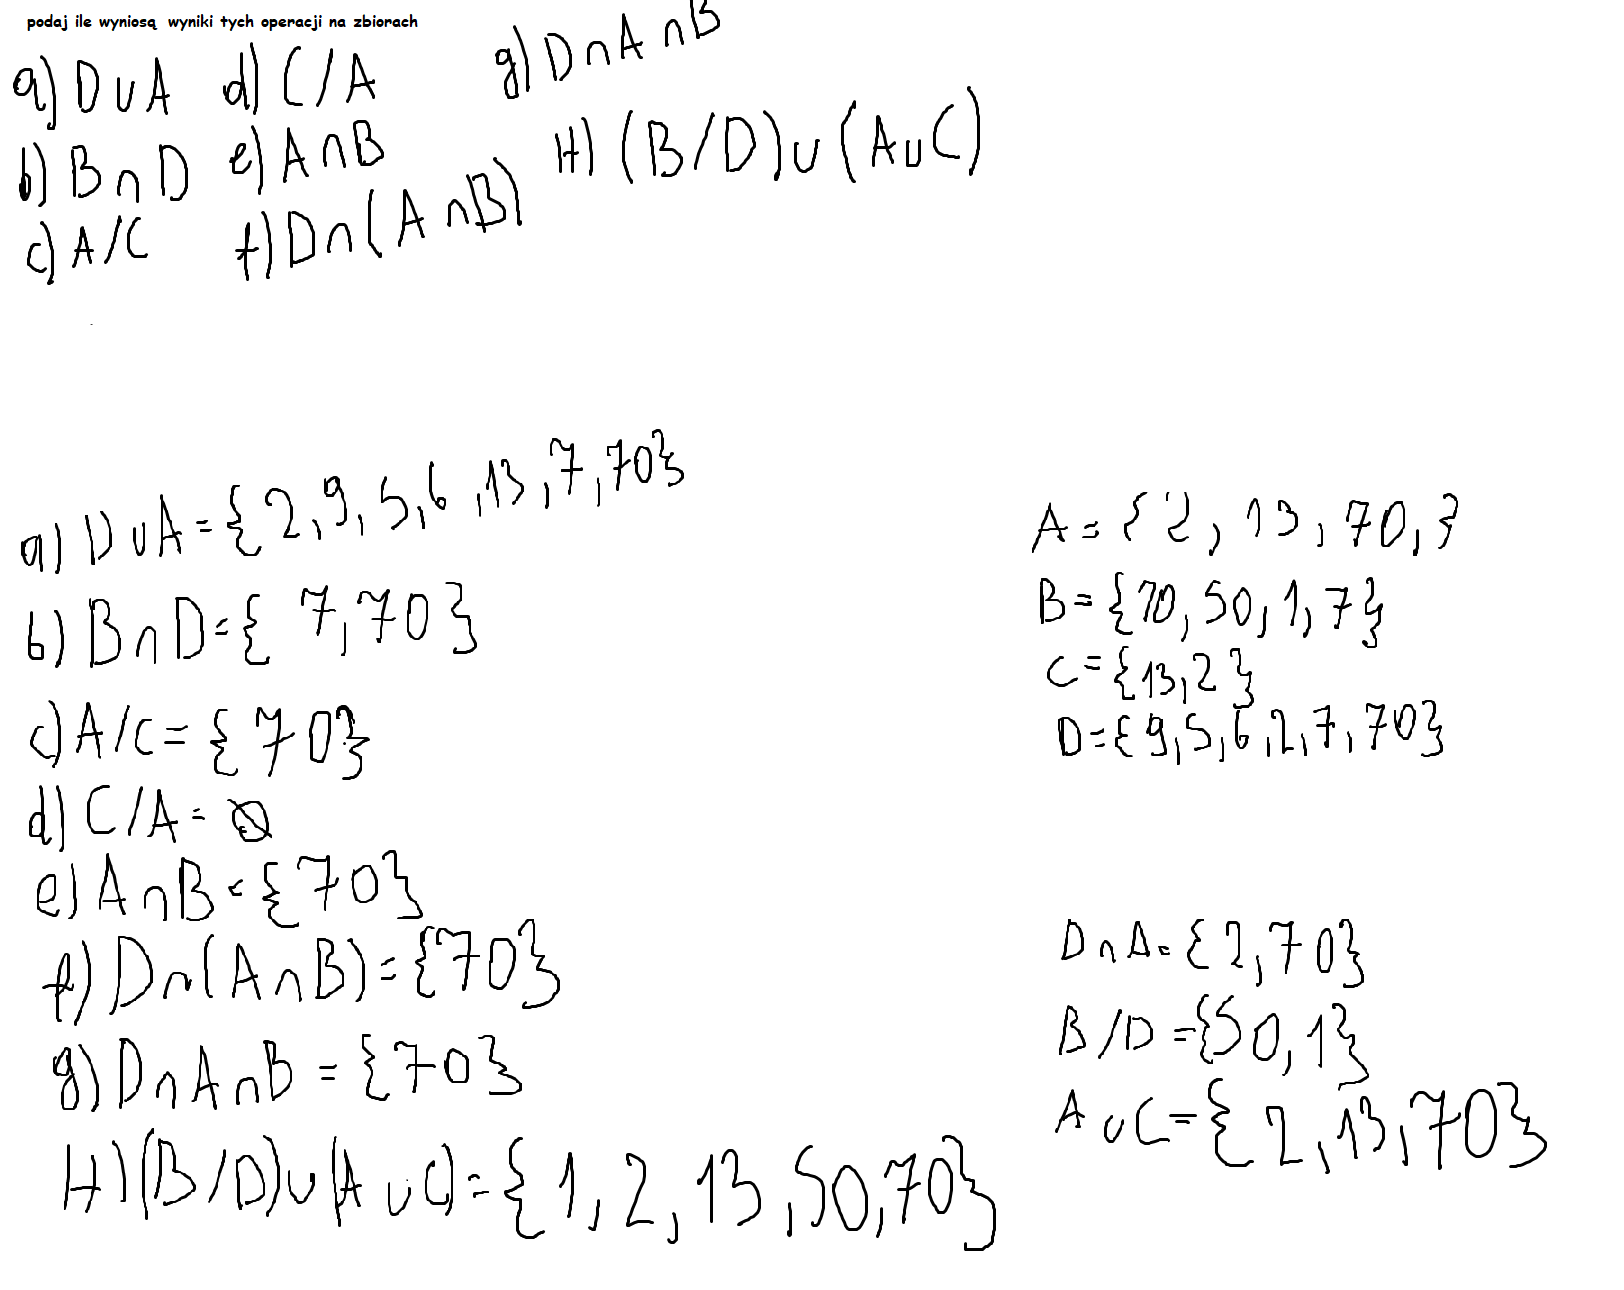 podaj ile wyniosą wyniki tych operacji na zbiorach
a) D∪A d) C/A g) D∩A∩B
b) B∩D e) A∩B H) (B/D)∪(A∪C)
c) A/C f) D∩(A∩B)
a) D∪A = {2, 9, 5, 6, 13, 7, 70}
b) B∩D = { 7, 70 }
c) A/C = {70}
d) C/A = Ø
e) A∩B = {70}
f) D∩(A∩B) = {70}
g) D∩A∩B = {70}
H) (B/D)∪(A∪C) = {1, 2, 13, 50, 70}
A = {2, 13, 70, }
B = {70, 50, 1, 7}
C = {13, 2}
D = {9, 5, 6, 2, 7, 70}
D∩A = {2, 70}
B/D = {50, 1}
A∪C = {2, 13, 70}